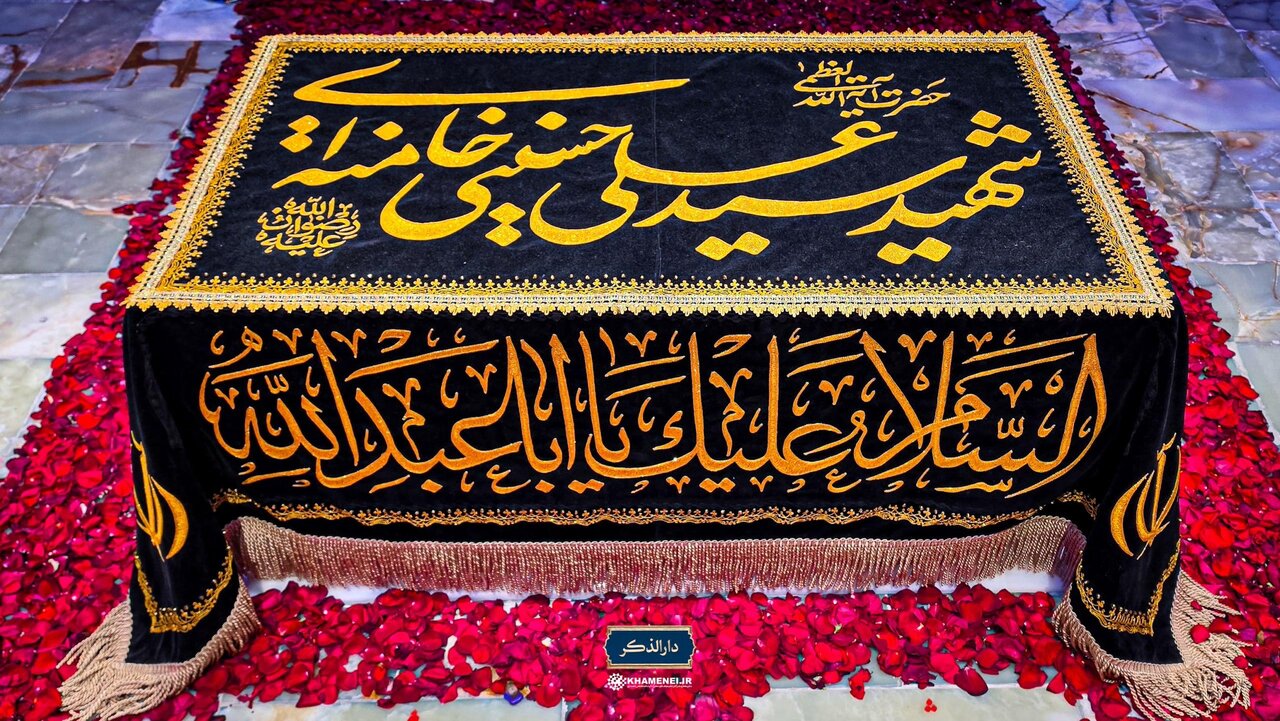 حضرت آیة الله العظمی
شهید سید علی حسینی خامنه‌ای
رضوان الله علیه
السلام علیک یا ابا عبدالله
دارالذکر
KHAMENEI.IR